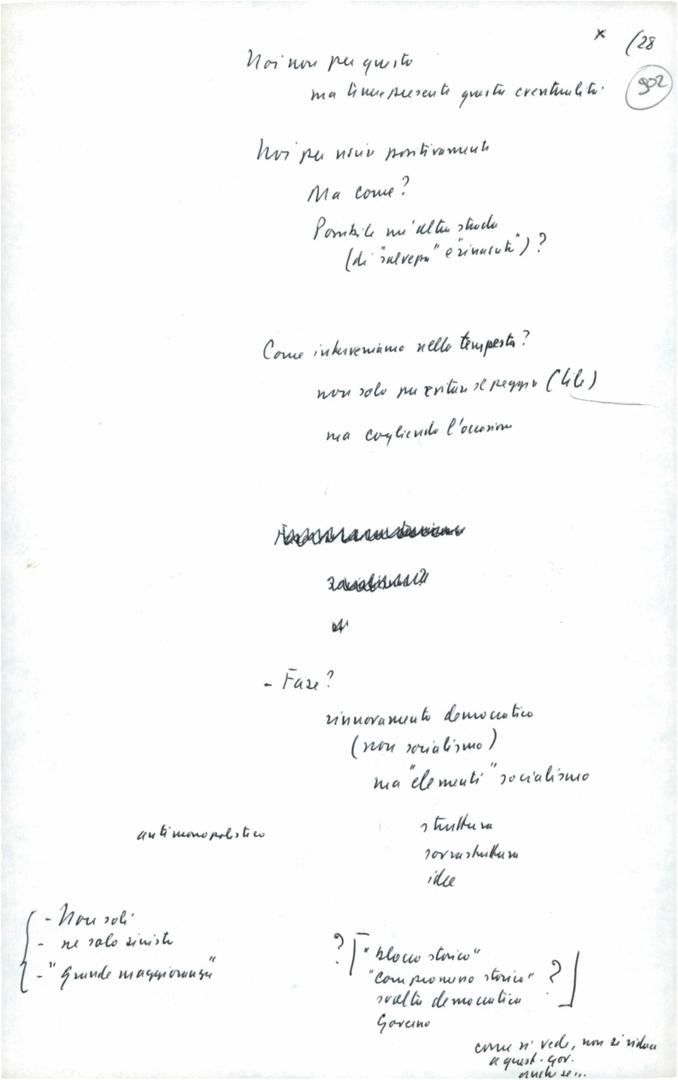 x (28
902
Noi non per questo
ma tener presente questa eventualità.
Noi per uscire positivamente
Ma come?
Possibile un'altra strada
(di "salvezza" e "rinascita") ?
Come interveniamo nella tempesta?
non solo per evitare il peggio
ma cogliendo l'occasione
- Fase?
rinnovamento democratico
(non socialismo)
ma "elementi" socialismo
antimonopolistico
struttura
sovrastruttura
idee
- Non soli
- ne solo sinistra
- "Grande maggioranza"
? "blocco storico"
"compromesso storico" ?
svolta democratica
Governo
come si vede, non si riduce
a quest. gov.
anche se...